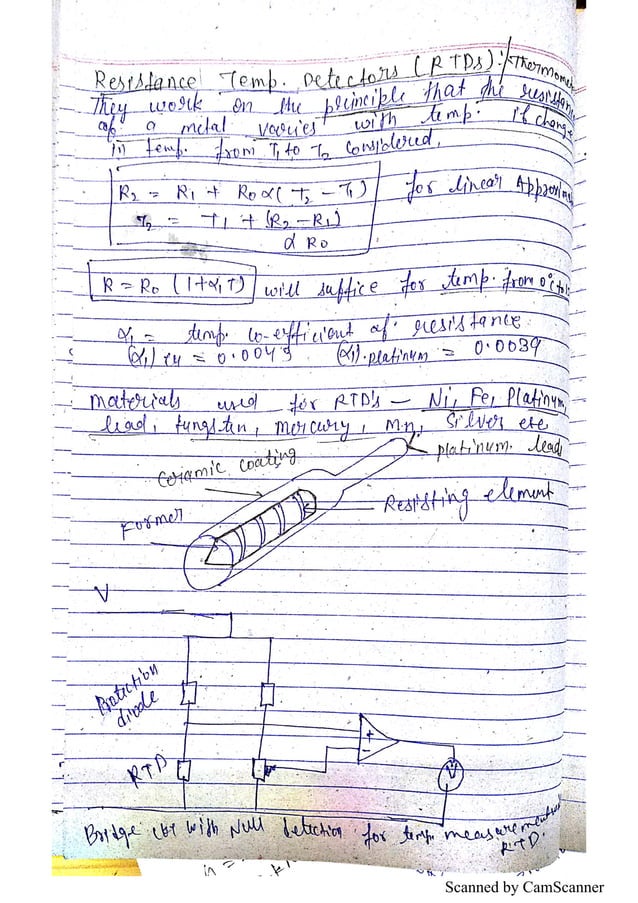 Resistance Temp. Detectors (RTDs):
They work on the principle that the resistance
of a metal varies with temp. if change
in temp. from T1 to T2 considered,
R2 = R1 + R0 α( T2 - T1) for linear
T2 = T1 + (R2 - R1)
α R0
R = R0 (1+α1T) will suffice for temp. from 0°C to
α1 = temp. co-efficient of resistance
(α1) cu = 0.0043 (α1).platinum = 0.0039
Materials used for RTD's - Ni, Fe, Platinum,
lead, tungstun, mercury, Mn, Silver etc
Ceramic coating
platinum. lead
Former
Resisting element
V
Protection
diode
+
-
RTD
V
Bridge ckt with Null detection for temp. measurement
RTD.
Scanned by CamScanner